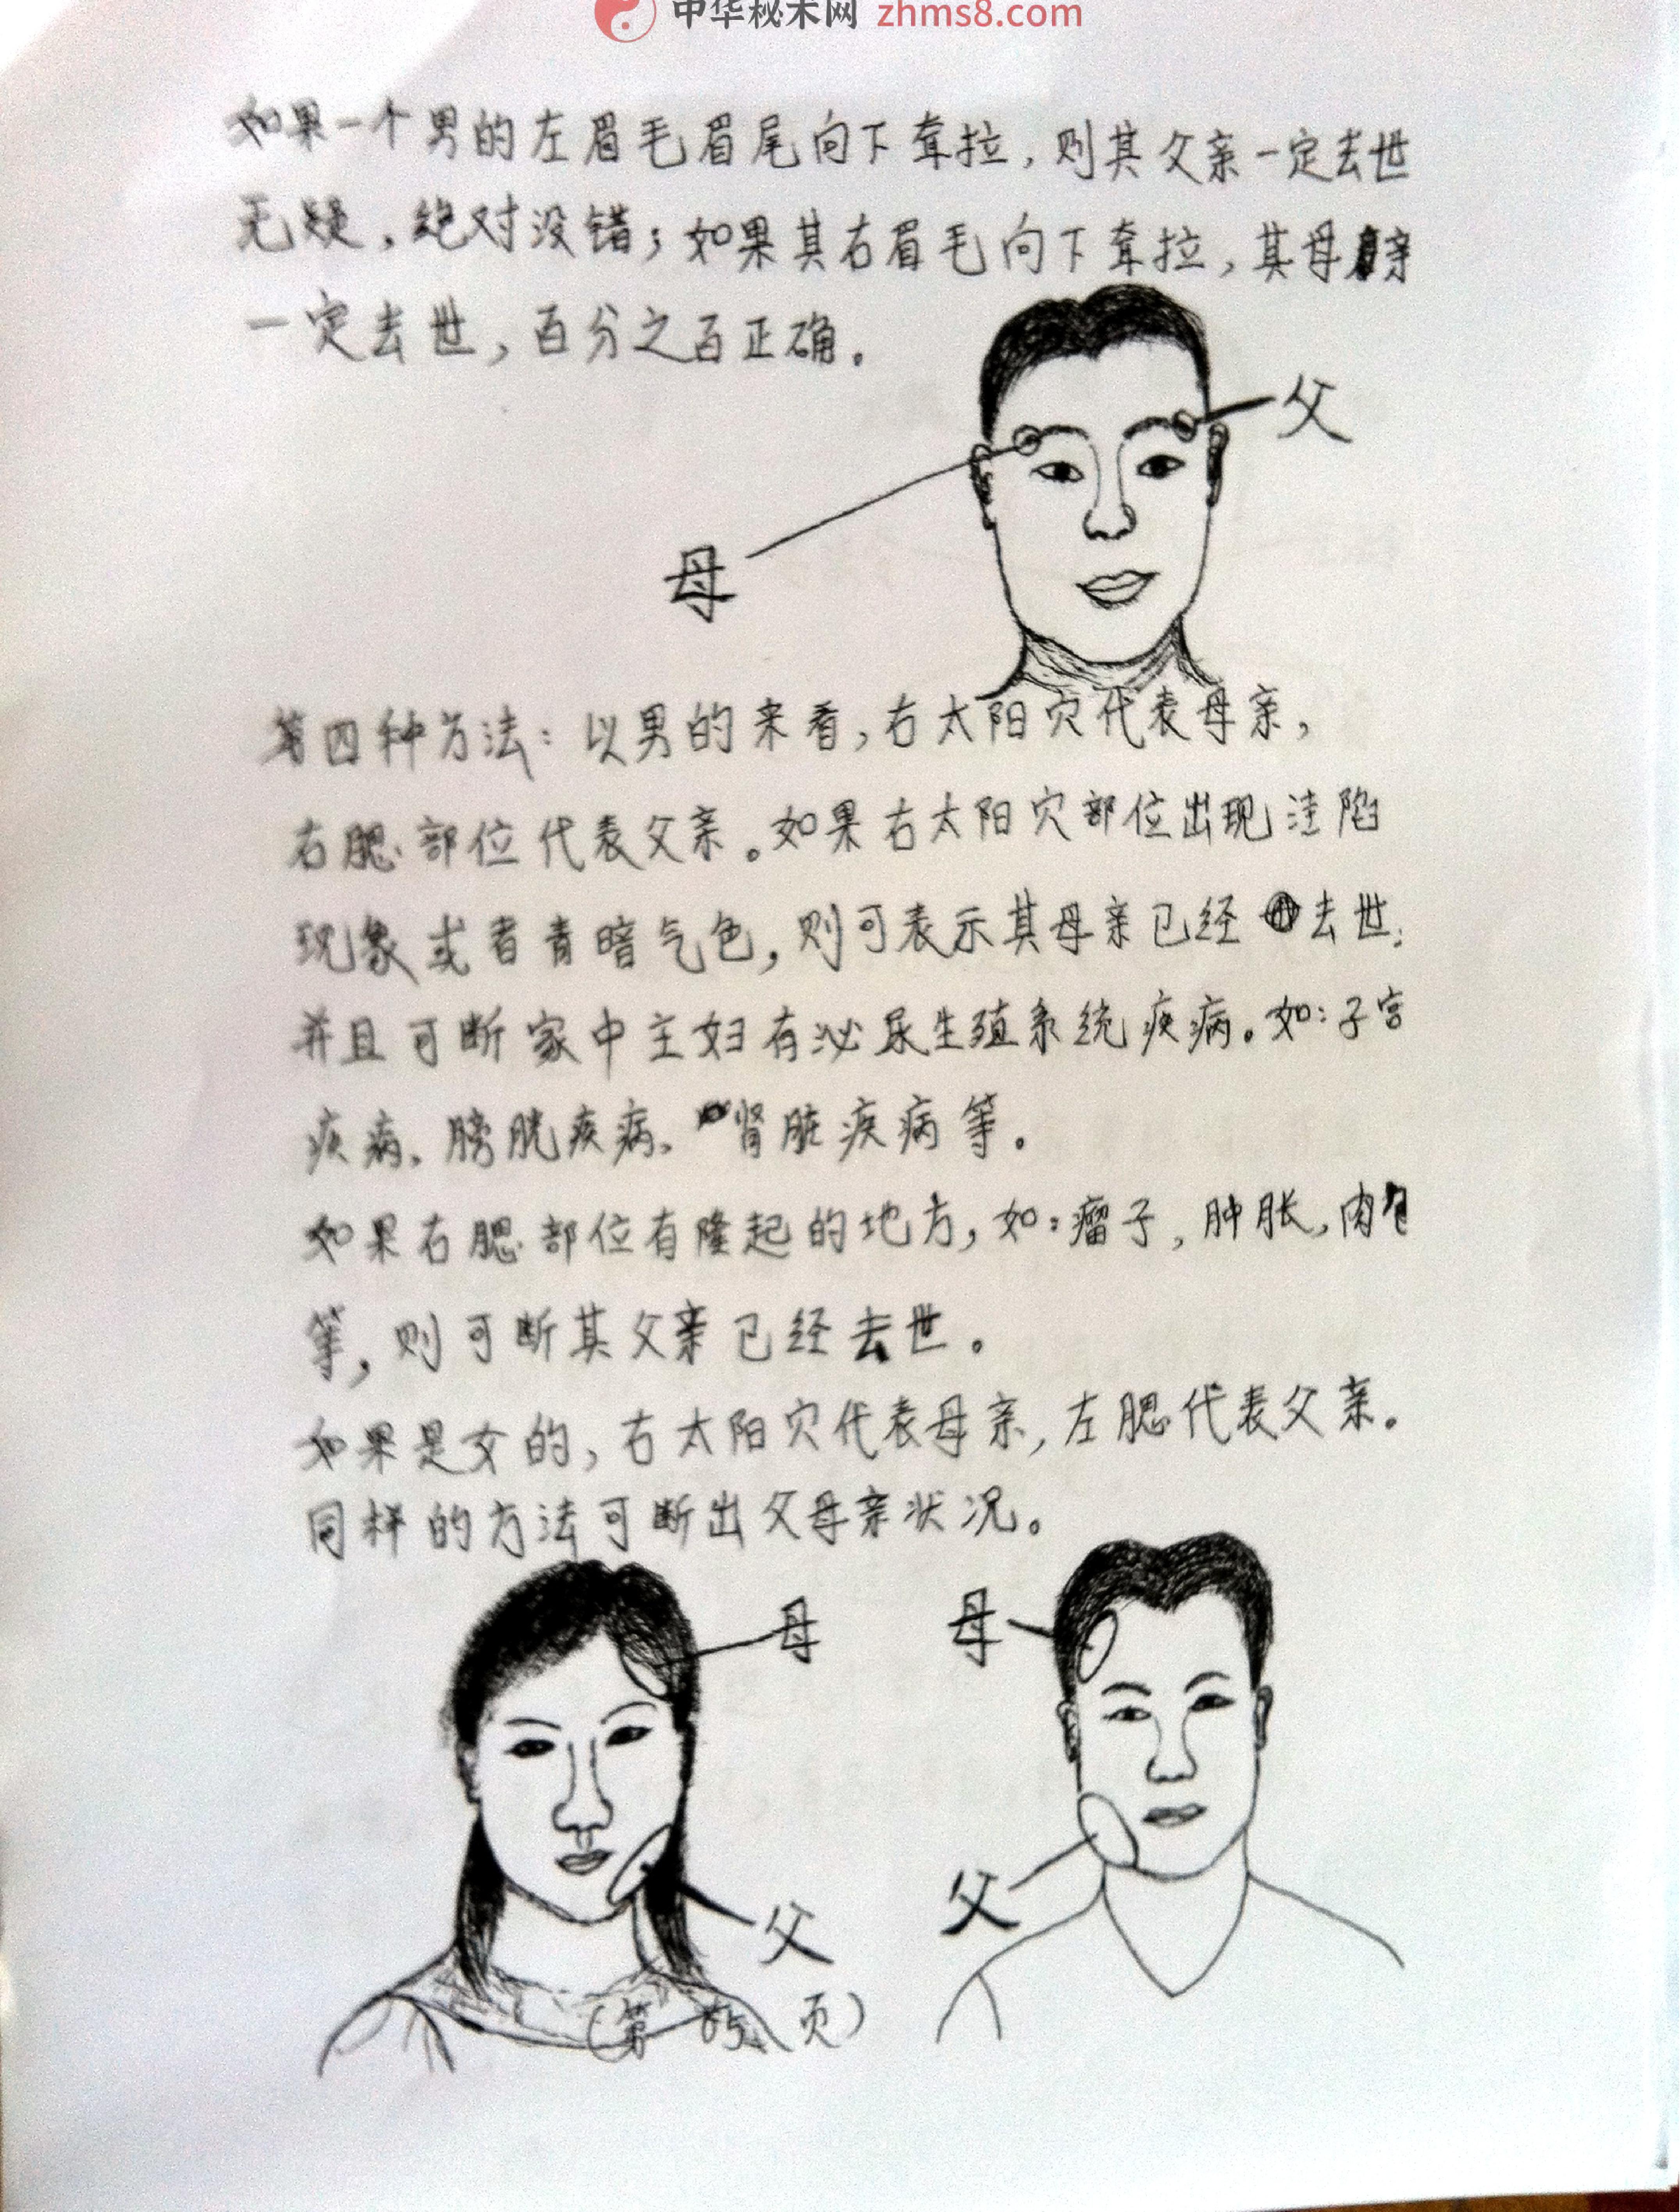 中华秘术网 zhms8.com
如果一个男的左眉毛眉尾向下耷拉，则其父亲一定去世
无疑，绝对没错；如果其右眉毛向下耷拉，其母亲
一定去世，百分之百正确。
父
母
第四种方法：以男的来看，右太阳穴代表母亲，
右腮部位代表父亲。如果右太阳穴部位出现洼陷
现象或者青暗气色，则可表示其母亲已经去世；
并且可断家中主妇有泌尿生殖系统疾病。如：子宫
疾病、膀胱疾病、肾脏疾病等。
如果右腮部位有隆起的地方，如：瘤子，肿胀，肉
等，则可断其父亲已经去世。
如果是女的，右太阳穴代表母亲，左腮代表父亲。
同样的方法可断出父母亲状况。
母
母
父
父
（第 85 页）